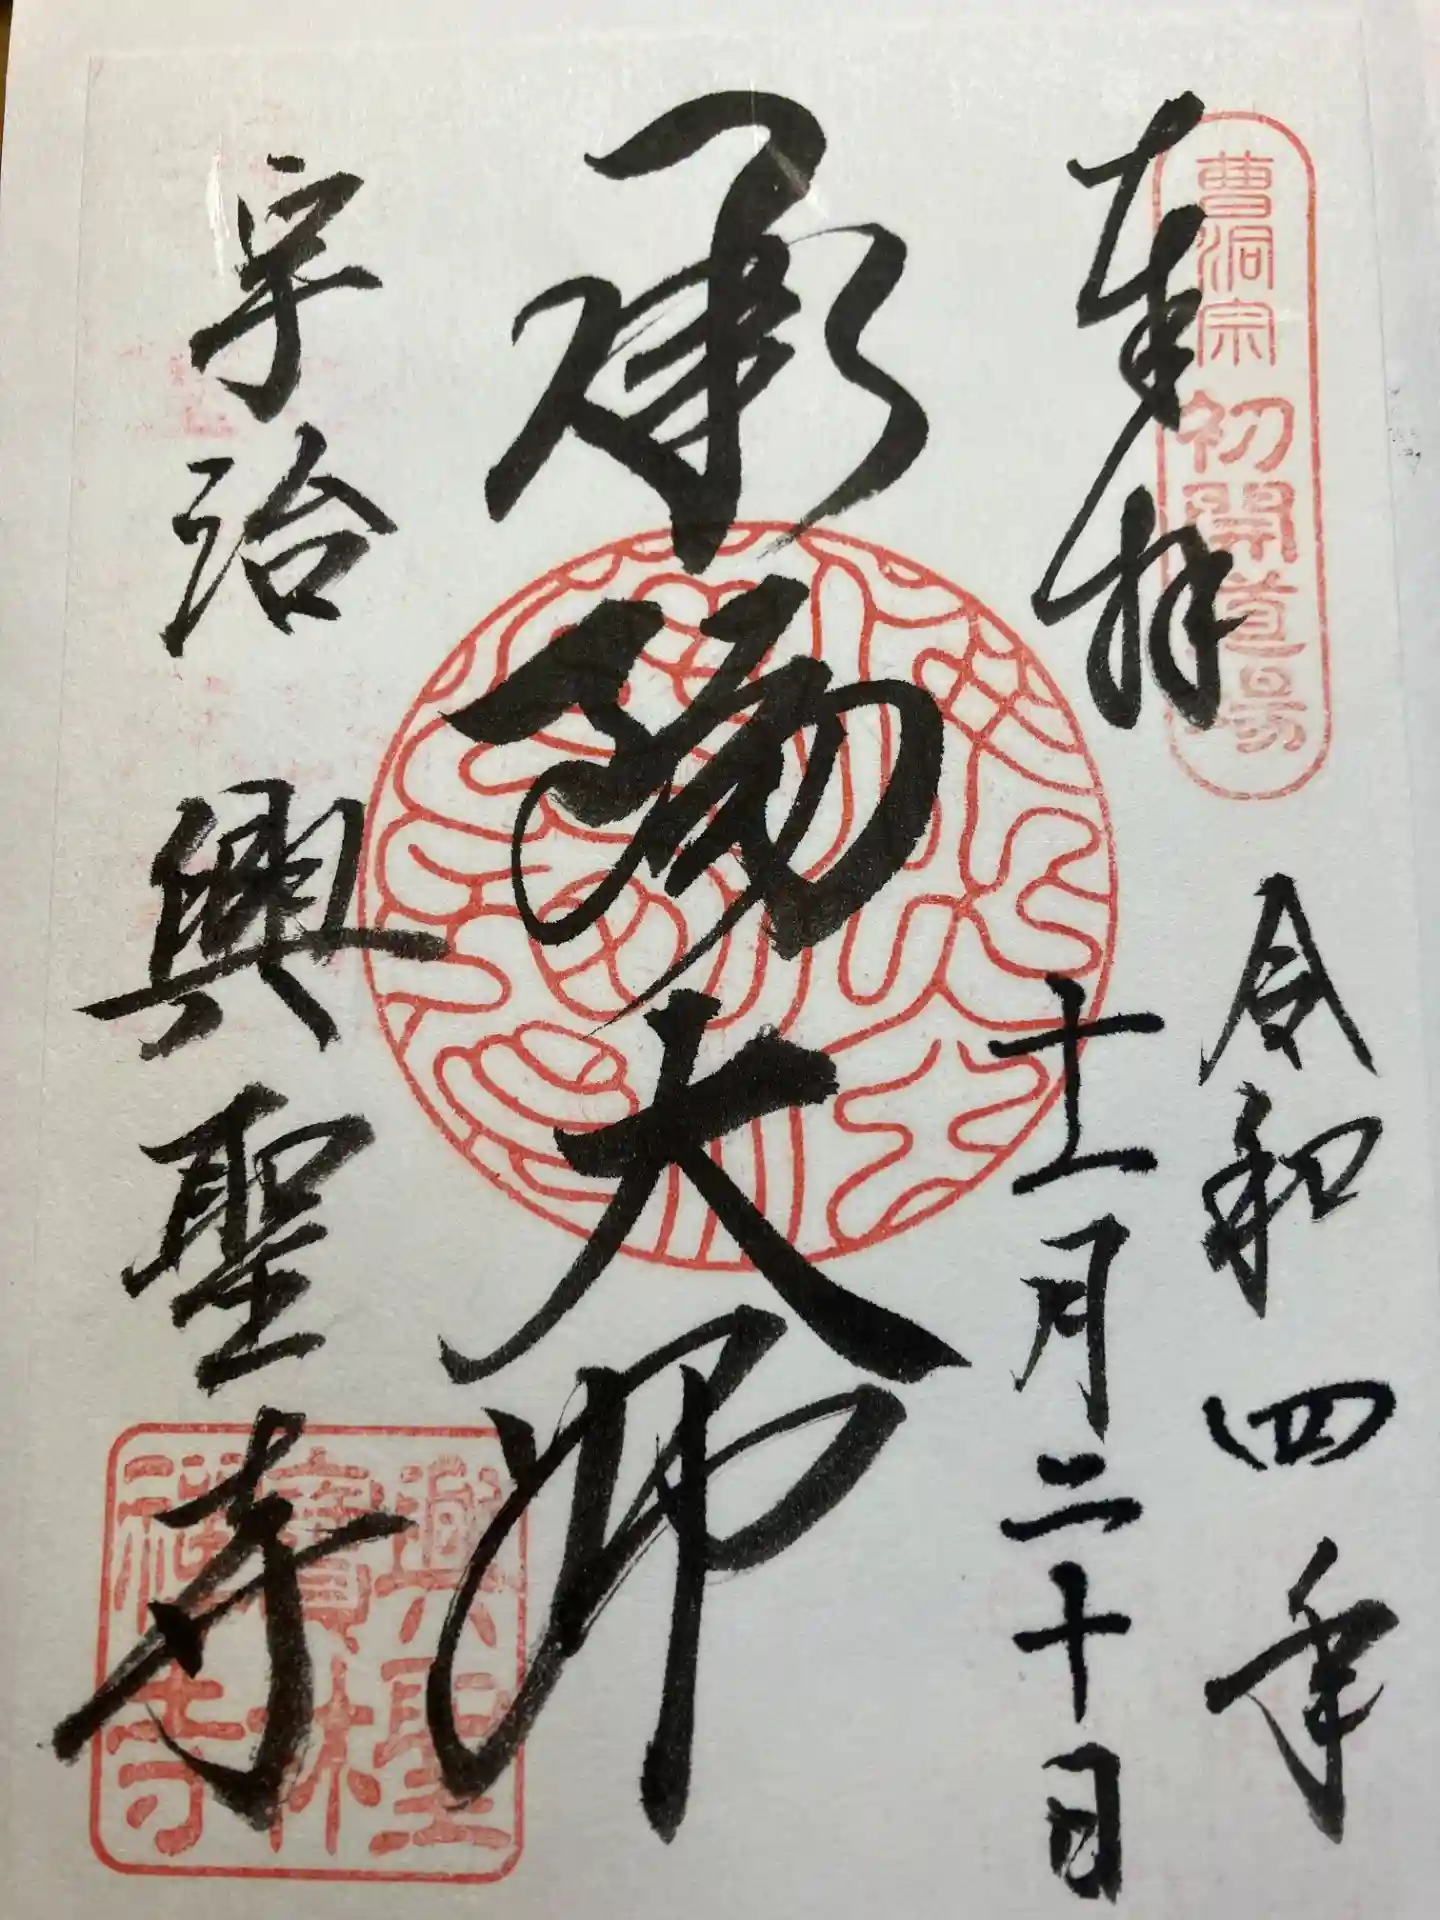 曹洞宗 初開道場
奉拝
令和四年
十一月二十日
承陽大師
宇治 興聖寺
興聖
寶林
禪寺